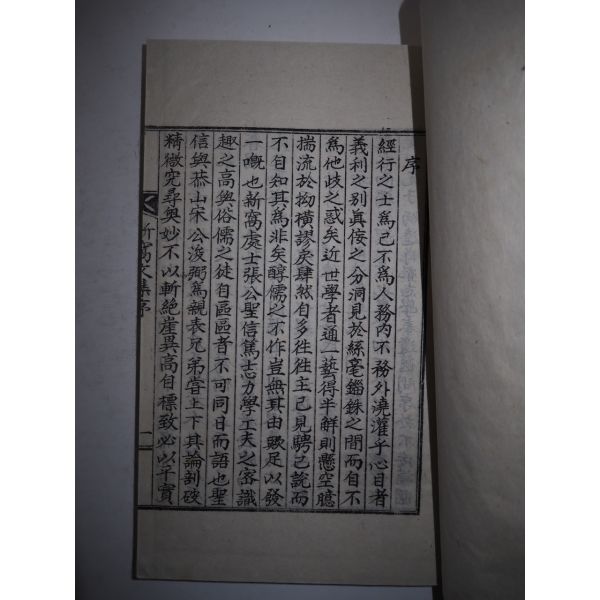 序
經行之士爲己不爲人務內不務外澆灌乎心目者
義利之別眞佞之分洞見於絲毫錙銖之間而自不
爲他歧之惑矣近世學者通一藝得半解則懸空臆
揣流於拗橫謬戾肆然自多徃徃主己見騁己說而
不自知其爲非矣醇儒之不作豈無其由歟足以發
一嘅也新窩處士張公聖信篤志力學工夫之密識
趣之高與俗儒之徒自區區者不可同日而語也聖
信與恭山宋公浚弼爲親表兄弟嘗上下其論剖破
精微究尋奧妙不以斬絕崖異高自標致必以平實
新窩文集序
一